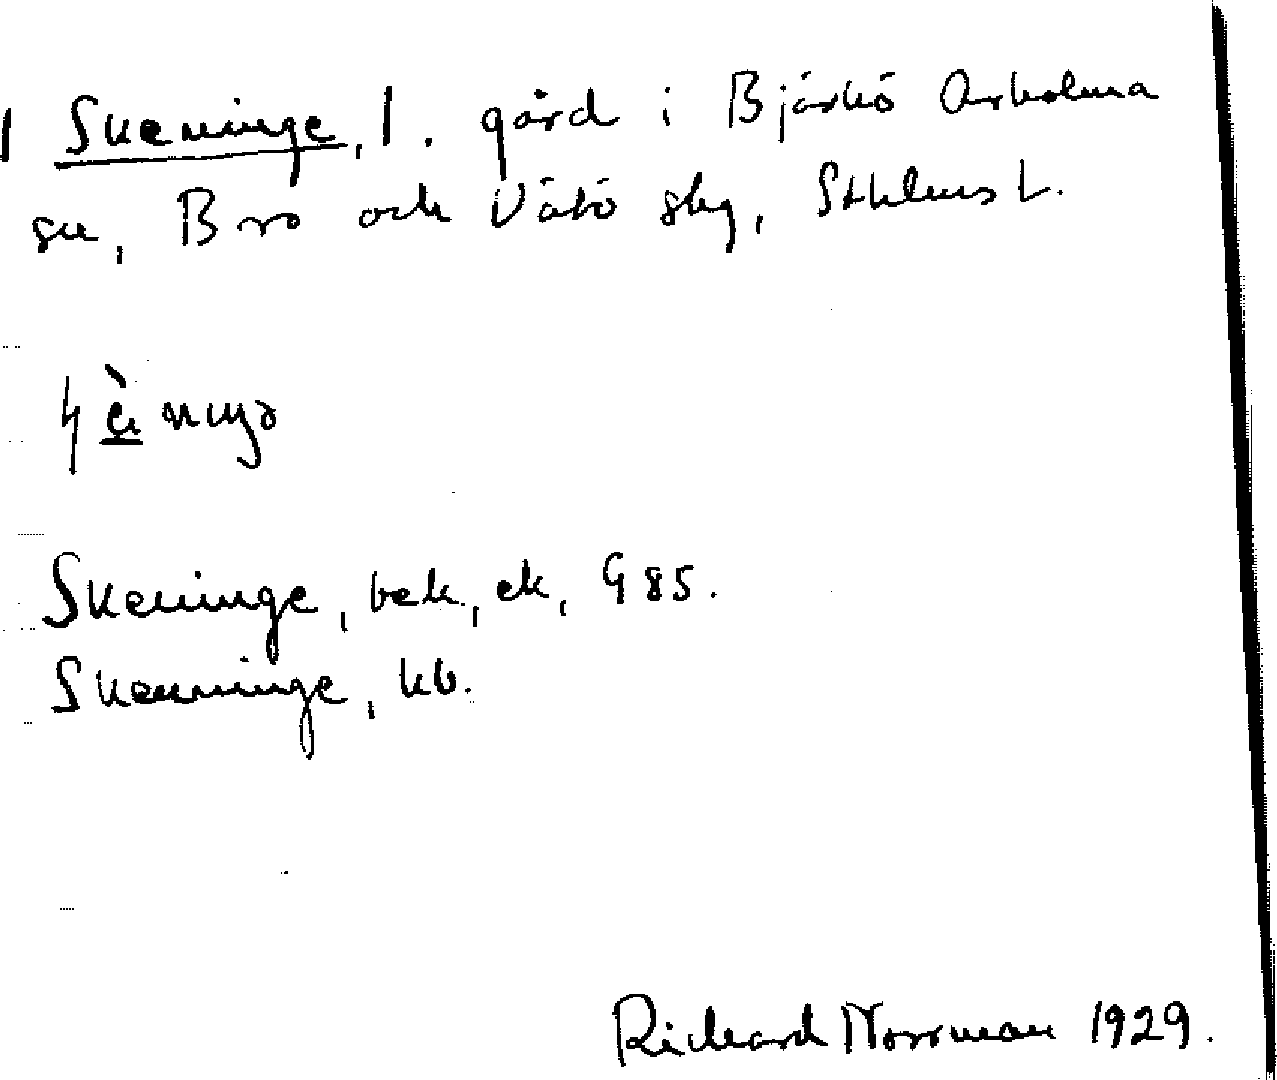 1 Skeninge, 1. gård i Björkö Arholma
sn, Bro och Vätö skg, Sthlms L.
Skeninge, bek, ek, G 85.
Skenninge, kb.
Richard Norrman 1929.